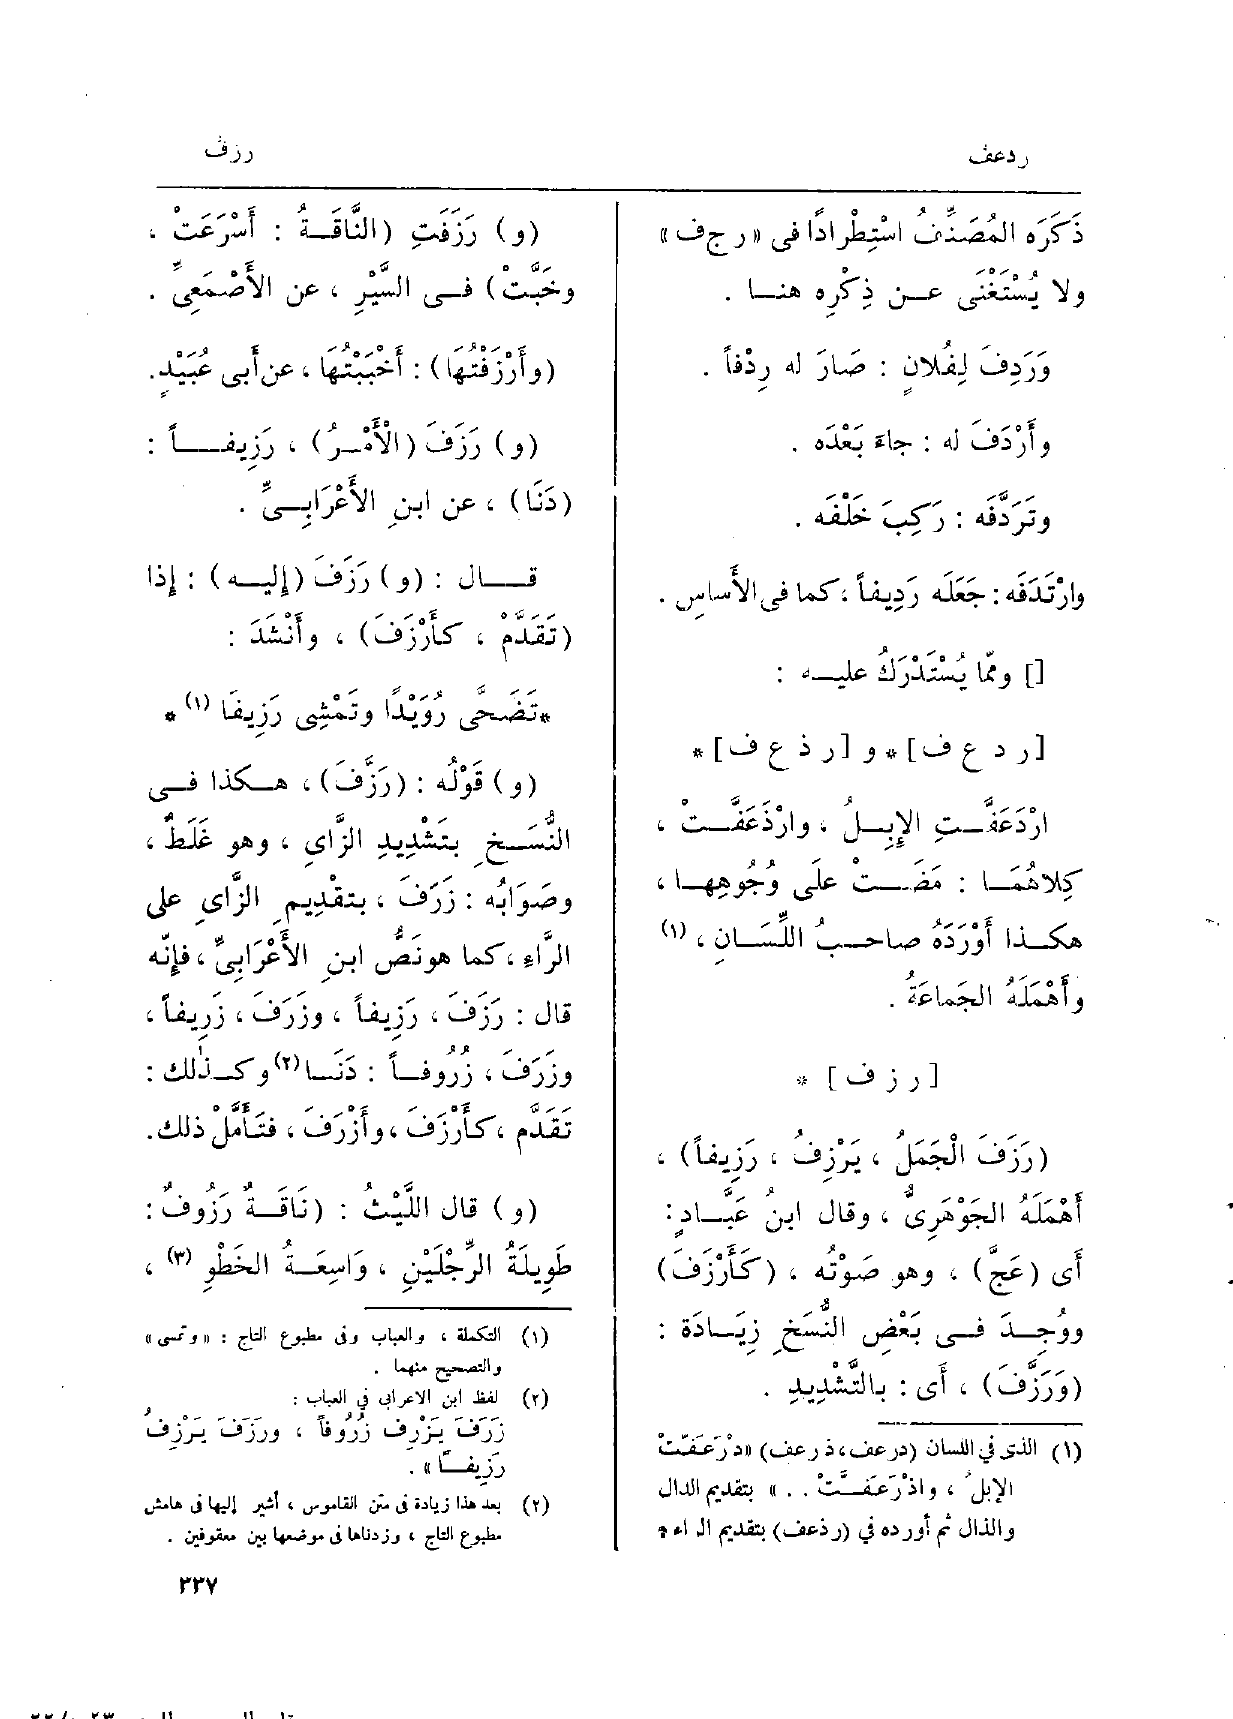 ردعف
رزف
ذَكَرَه المُصَنِّفُ اسْتِطْرادًا فى « ر ج ف »
ولا يُسْتَغْنَى عـن ذِكْرِه هنـا .
وَرَدِفَ لِفُلانٍ : صَارَ له رِدْفاً .
وأَرْدَفَ له : جاءَ بَعْدَه .
وتَرَدَّفَه : رَكِبَ خَلْفَه .
وارْتَدَفَه : جَعَلَه رَدِيفاً ، كما فى الأَساسِ .
[] وممّا يُسْتَدْرَكُ عليـه :
[ ر د ع ف ] * و [ ر ذ ع ف ] *
ارْدَعَفَّـتِ الإِبِـلُ ، وارْذَعَفَّـتْ ،
كِلاهُمَـا : مَضَـتْ على وُجُوهِهـا ،
هكـذا أَوْرَدَهُ صاحـبُ اللِّسَـانِ ، (١)
وأَهْمَلَهُ الجَماعَةُ .
[ ر ز ف ] *
(رَزَفَ الْجَمَلُ ، يَرْزِفُ ، رَزِيفاً) ،
أَهْمَلَهُ الجَوْهَرِىُّ ، وقال ابنُ عَبَّـادٍ :
أَى (عَجَّ) ، وهو صَوْتُه ، (كَأَرْزَفَ)
ووُجِـدَ فـى بَعْضِ النُّسَخِ زِيَـادَة :
(وَرَزَّفَ) ، أَى : بالتَّشْدِيدِ .
(١) الذى فى اللسان (درعف، ذرعف) «ادْرَعَفَّتْ
الإبلُ ، واذْرَعَفَّـتْ . . » بتقديم الدال
والذال ثم أورده في (رذعف) بتقديم الراء
(و) رَزَفَتِ (النَّاقَـةُ : أَسْرَعَتْ ،
وخَبَّتْ) فـى السَّيْرِ ، عن الأَصْمَعِىِّ .
(وأَرْزَفْتُهَا) : أَخْبَبْتُهَا ، عن أَبى عُبَيْدٍ .
(و) رَزَفَ (الْأَمْـرُ) ، رَزِيفــاً :
(دَنَا) ، عن ابنِ الأَعْرَابِـىِّ .
قــال : (و) رَزَفَ (إليـه) : إذا
(تَقَدَّمَ ، كأَرْزَفَ) ، وأَنْشَدَ :
* تَضَحَّى رُوَيْدًا وتَمْشِى رَزِيفَا (١) *
(و) قَوْلُه : (رَزَّفَ) ، هـكذا فـى
النُّسَـخِ بتَشْدِيدِ الزَّاىِ ، وهو غَلَطٌ ،
وصَوَابُه : زَرَفَ ، بتقدِيمِ الزَّاىِ على
الرَّاءِ ، كما هو نَصُّ ابنِ الأَعْرَابِىِّ ، فإِنَّه
قال : رَزَفَ ، رَزِيفاً ، وزَرَفَ ، زَرِيفاً ،
وزَرَفَ ، زُرُوفـاً : دَنَـا (٢) وكـذٰلك :
تَقَدَّم ، كأَرْزَفَ ، وأَزْرَفَ ، فتَأَمَّلْ ذلك .
(و) قال اللَّيْثُ : (نَاقَـةٌ رَزُوفٌ :
طَوِيلَةُ الرِّجْلَيْنِ ، وَاسِعَـةُ الخَطْوِ (٣) ،
(١) التكملة ، والعباب وفى مطبوع التاج : « وتمسى »
والتصحيح منهما .
(٢) لفظ ابن الاعرابى في العباب :
زَرَفَ يَزْرِف زُرُوفاً ، ورزَفَ يَرْزِفُ
رَزِيفـًا » .
(٢) بعد هذا زيادة فى متن القاموس ، أشير إليها فى هامش
مطبوع التاج ، وزدناها فى موضعها بين معقوفين .
٣٣٧